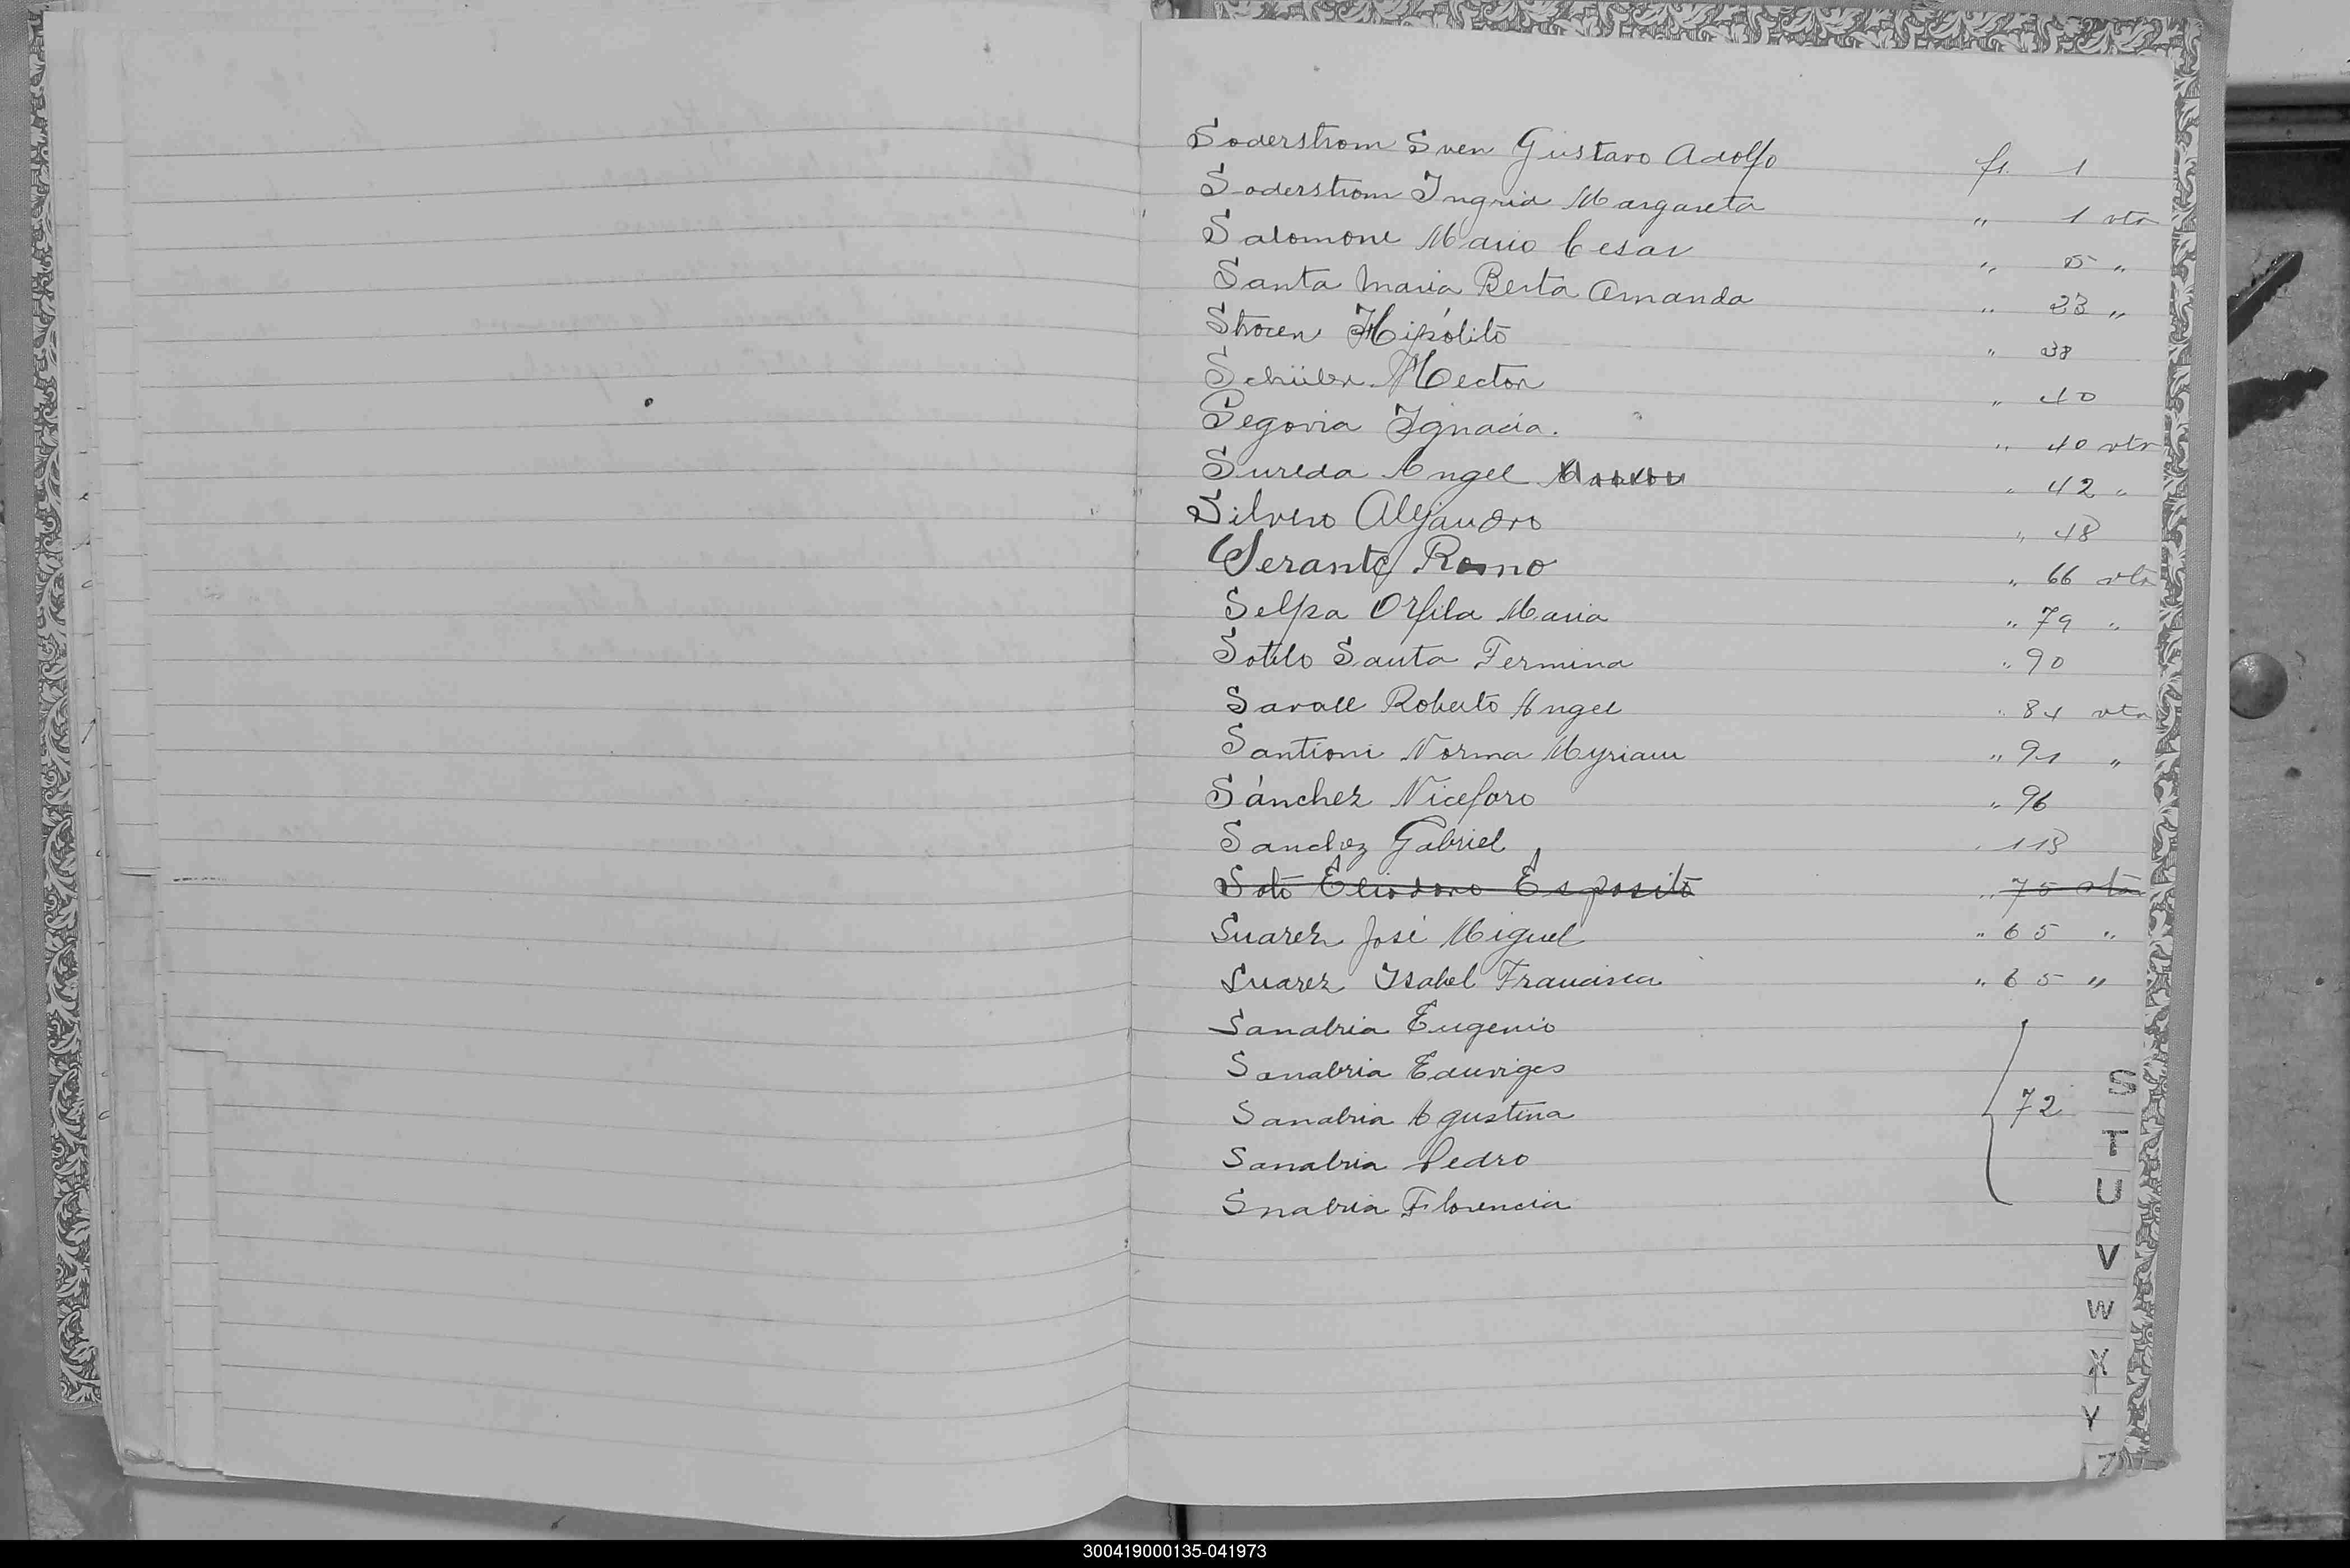 Soderstrom Sven Gustavo Adolfo fs. 1
Soderstrom Ingrid Margareta " 1 vta
Salomone Mario Cesar " 5 "
Santa Maria Berta Amanda " 23 "
Strocen Hipólito " 38
Schüler Hector " 40
Segovia Ignacia. " 40 vta
Sureda Angel " 42 "
Silvero Alejandro " 48
Serante Romo " 66 vta
Selpa Orfila Maria " 79 "
Sotelo Santa Fermina " 90
Savall Roberto Angel " 84 vta
Santioni Norma Myriam " 91 "
Sánchez Niceforo " 96
Sanchez Gabriel " 113
Soto Eliodoro Esposito " 75 vta
Suarez José Miguel " 65 "
Suarez Isabel Francisca " 65 "
Sanabria Eugenio
Sanabria Eduviges
Sanabria Agustina 72
Sanabria Pedro
Snabria Florencia
S
T
U
V
W
X
Y
Z
300419000135-041973